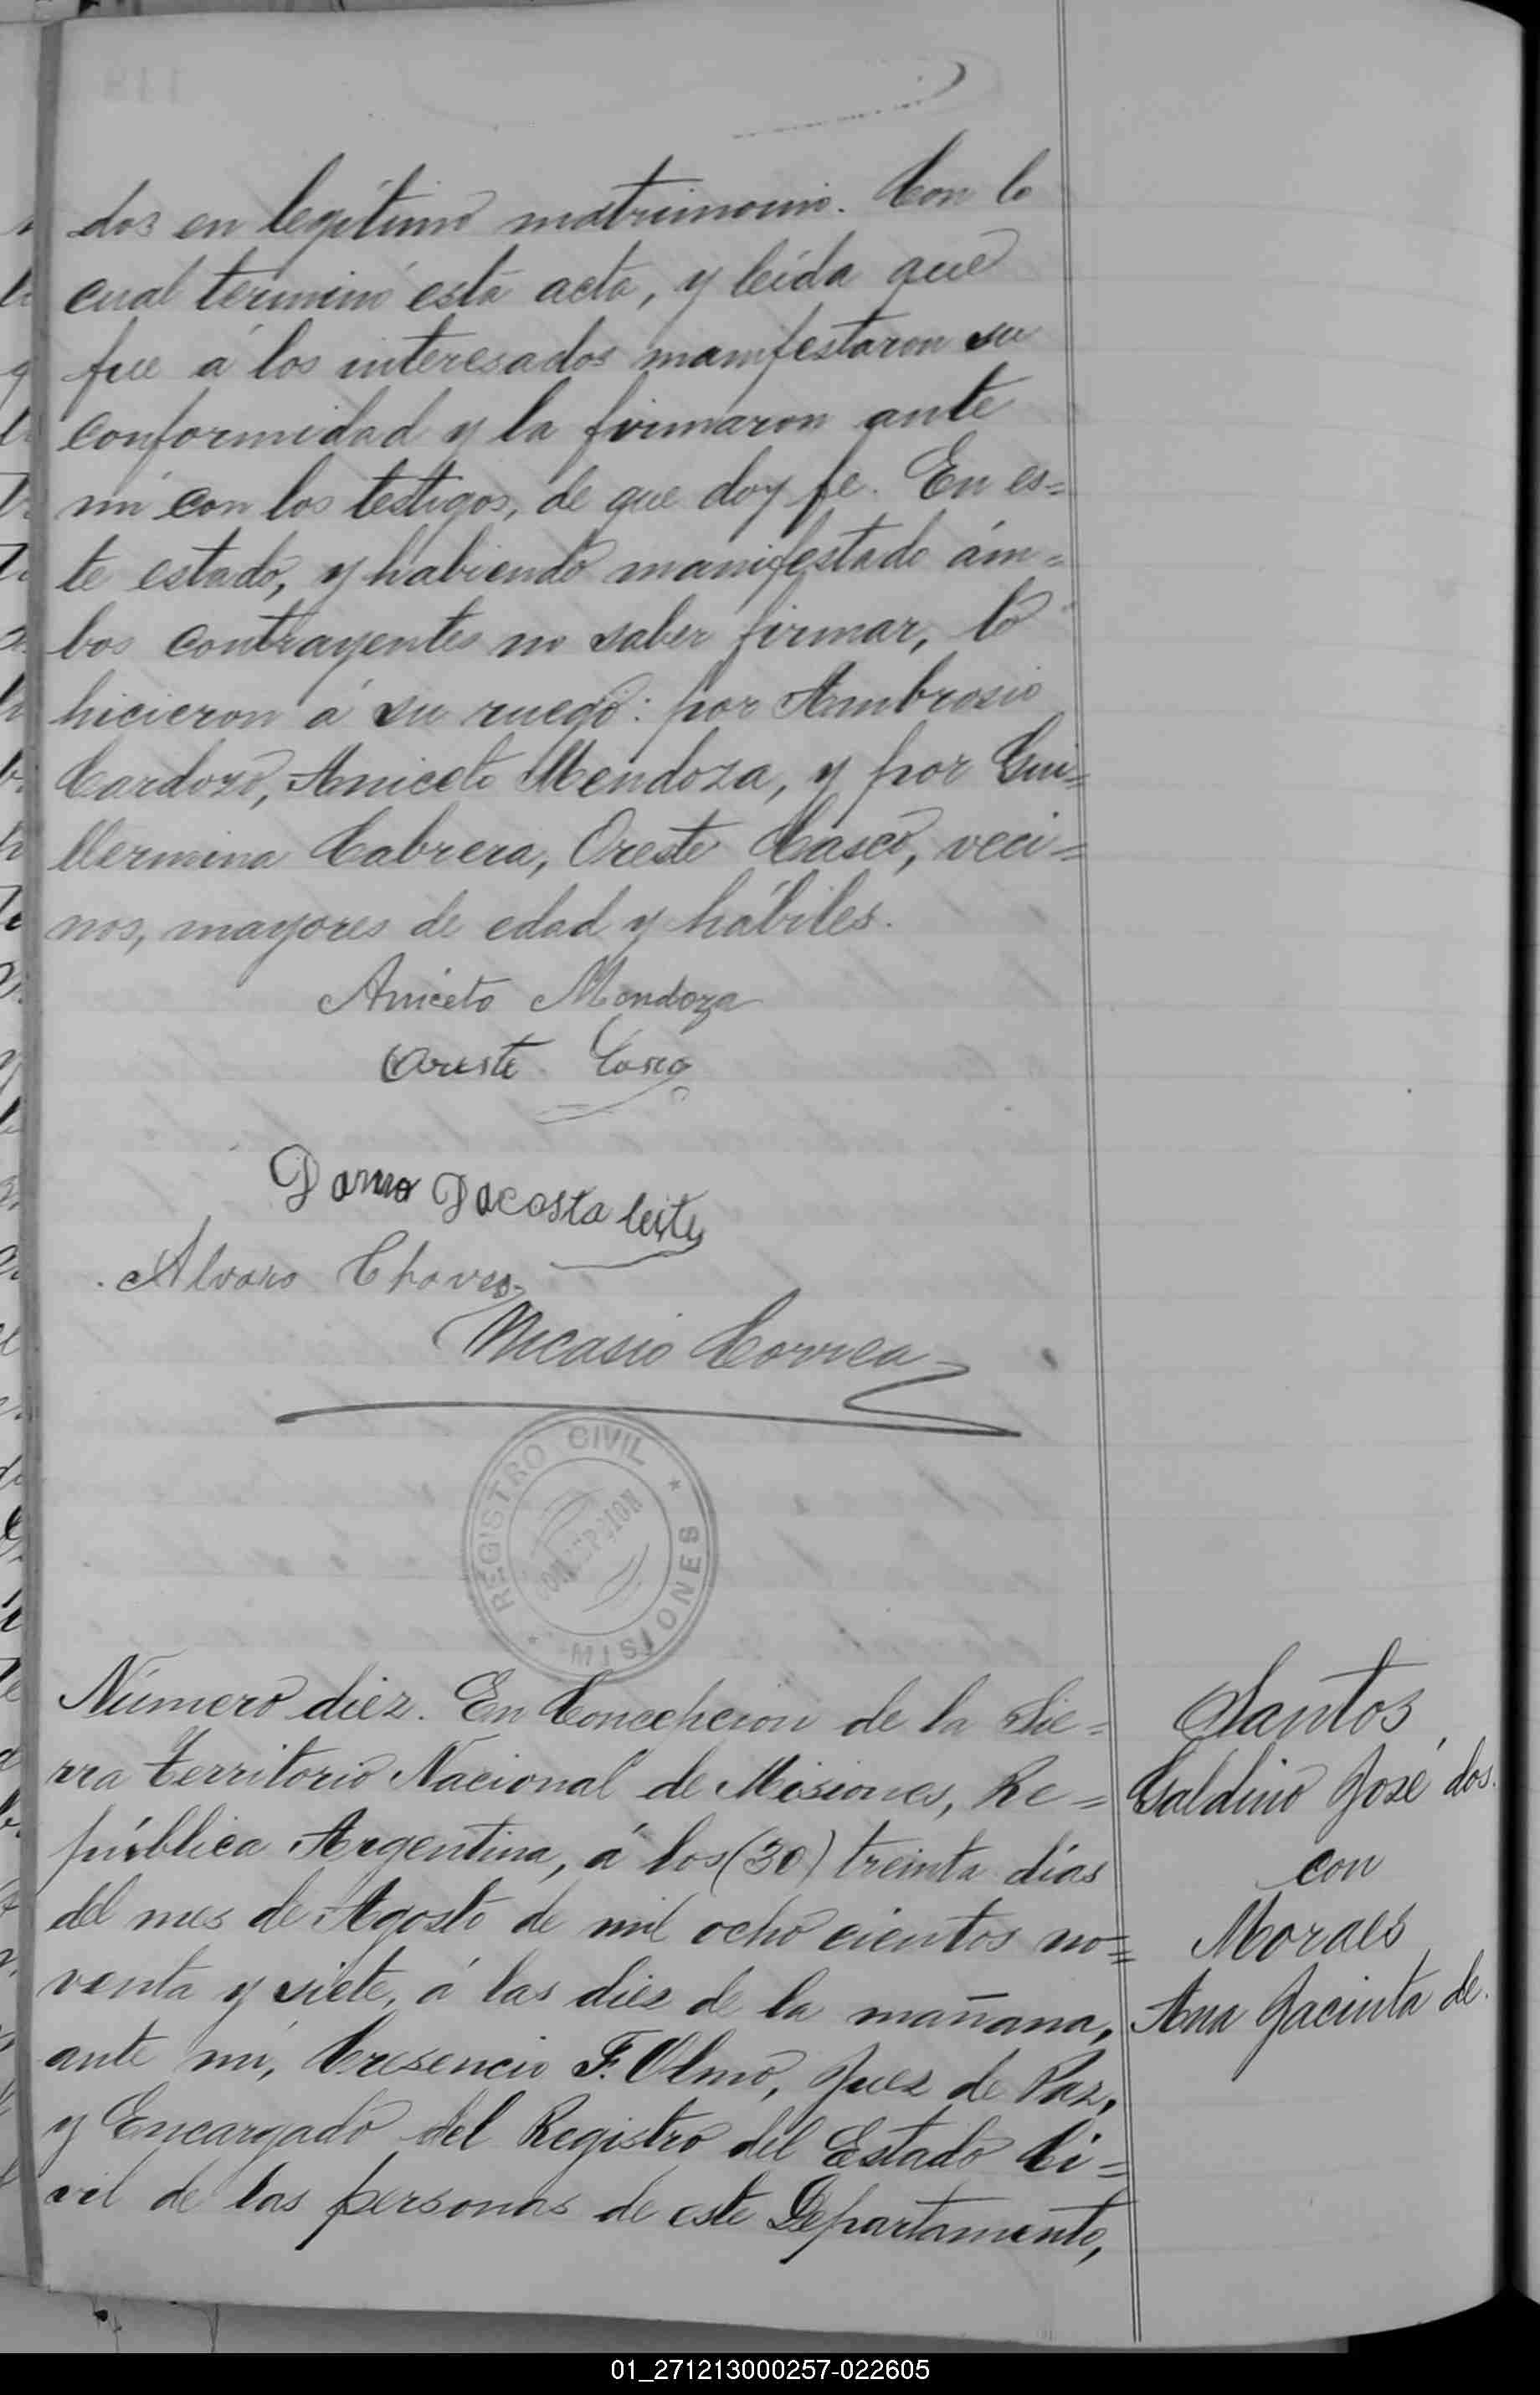 dos en legítimo matrimonio. Con lo
cual terminó esta acta, y leída que
fue á los interesados manifestaron su
conformidad y la firmaron ante
mí con los testigos, de que doy fe. En es=
te estado, y habiendo manifestado ám=
bos contrayentes no saber firmar, lo
hicieron á su ruego: por Ambrosio
Cardozo, Aniceto Mendoza, y por Gui=
llermina Cabrera, Oreste Casco, veci=
nos, mayores de edad y hábiles.
Aniceto Mendoza
Oreste Casco
Dacosta leite
Alvaro Chaves
Nicasio Correa
REGISTRO CIVIL
CONCEPCION
MISIONES
Número diez. En Concepcion de la Sie=
rra Territorio Nacional de Misiones, Re=
pública Argentina, á los (30) treinta días
del mes de Agosto de mil ocho cientos no=
venta y siete, á las diez de la mañana,
ante mí, Cresencio F. Olmo, Juez de Paz,
y Encargado del Registro del Estado Ci=
vil de las personas de este Departamento,
Santos,
Galdino José dos.
con
Moraes
Ana Jacinta de.
01_271213000257-022605